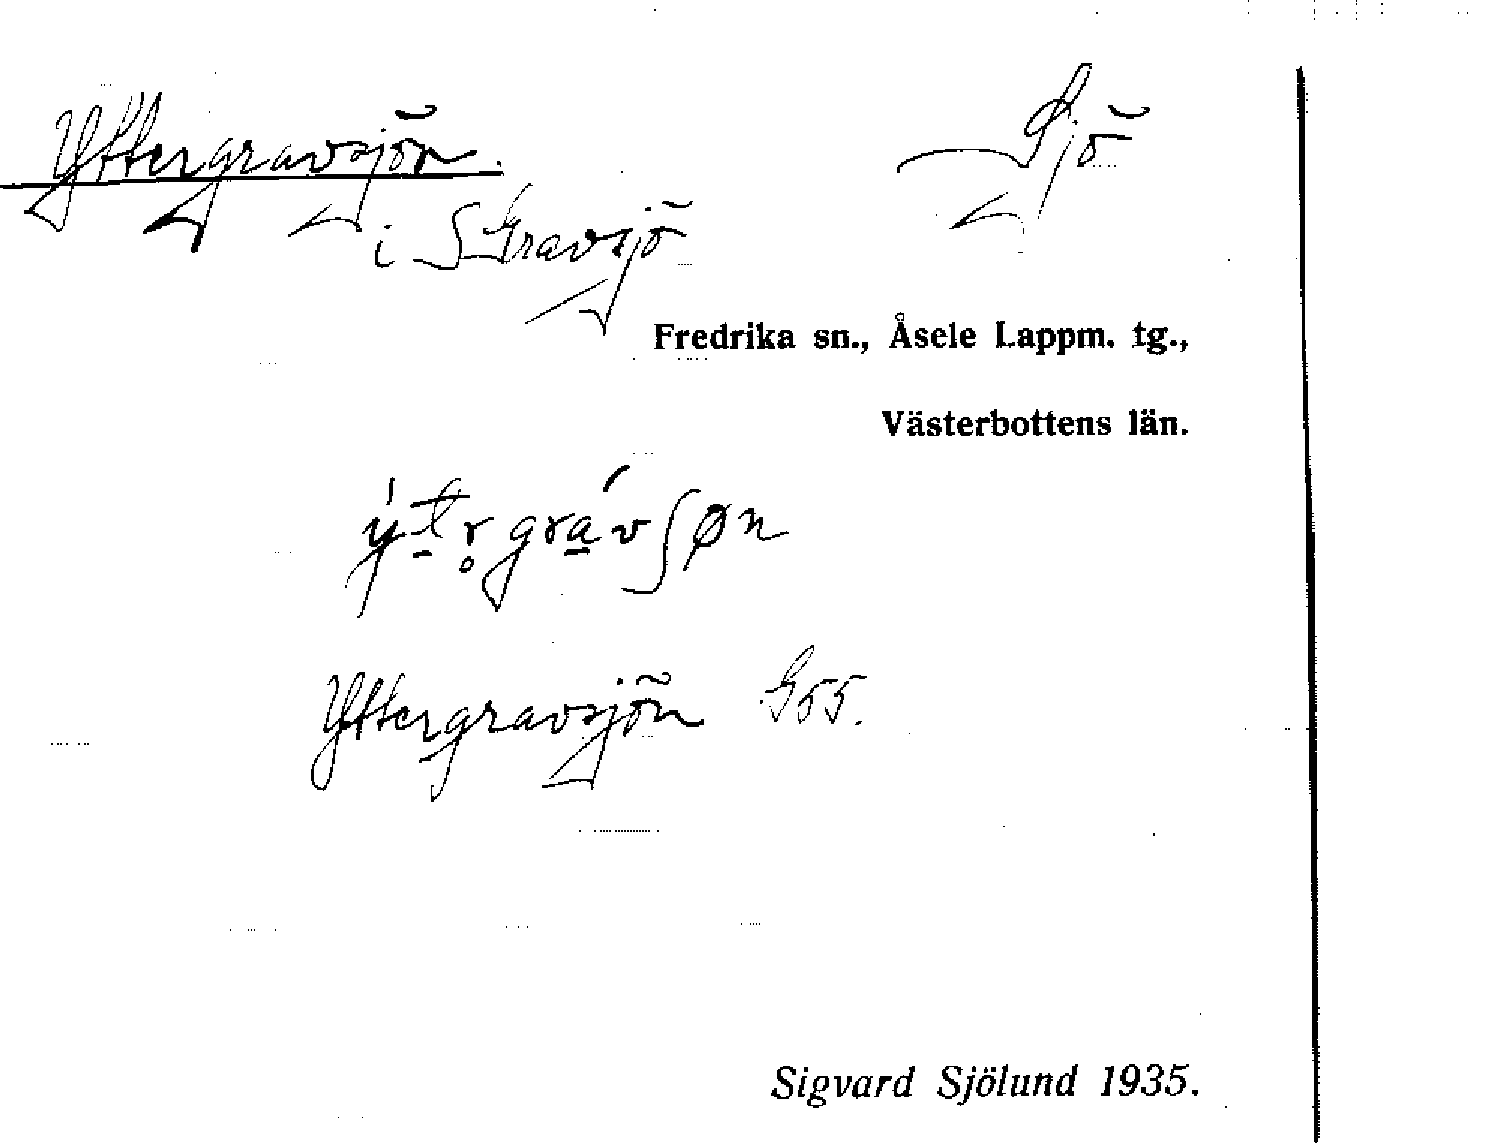 Yttergravsjön. Sjö
i S Gravsjö
Fredrika sn., Åsele Lappm. tg.,
Västerbottens län.
Yttergravsjön G55.
Sigvard Sjölund 1935.